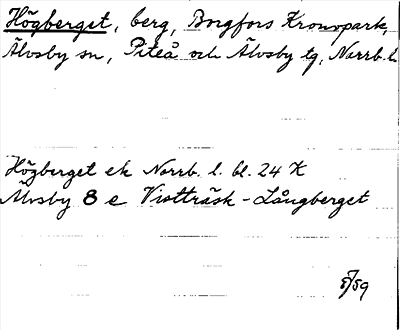 Högberget, berg, Borgfors Kronopark,
Älvsby sn, Piteå och Älvsby tg, Norrb. l.
Högberget ek Norrb. l. bl. 24 K
Älvsby 8 e Vistträsk - Långberget
5/59